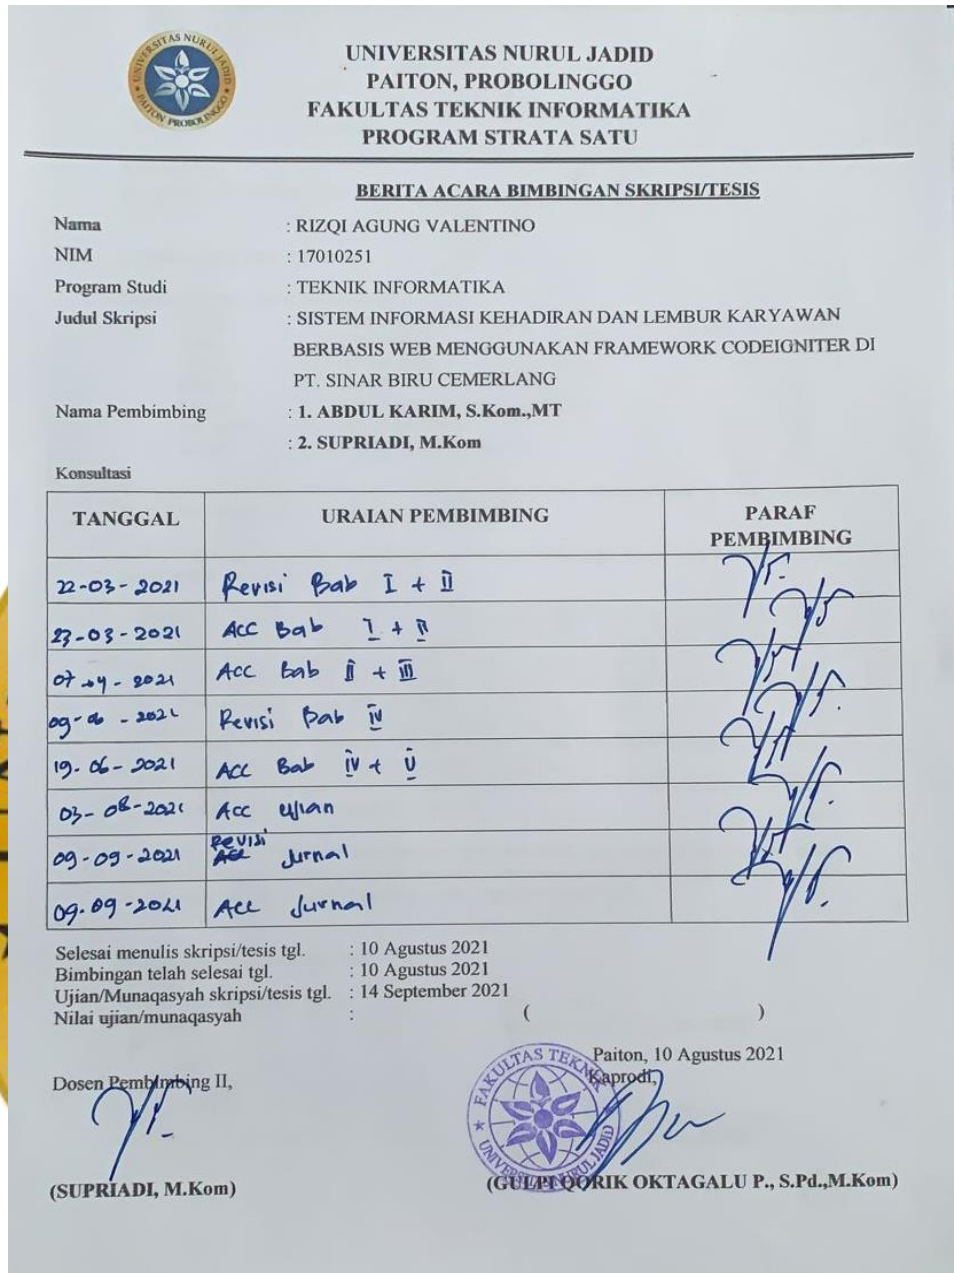 UNIVERSITAS NURUL JADID
PAITON PROBOLINGGO
UNIVERSITAS NURUL JADID
PAITON, PROBOLINGGO
FAKULTAS TEKNIK INFORMATIKA
PROGRAM STRATA SATU
BERITA ACARA BIMBINGAN SKRIPSI/TESIS
Nama : RIZQI AGUNG VALENTINO
NIM : 17010251
Program Studi : TEKNIK INFORMATIKA
Judul Skripsi : SISTEM INFORMASI KEHADIRAN DAN LEMBUR KARYAWAN
BERBASIS WEB MENGGUNAKAN FRAMEWORK CODEIGNITER DI
PT. SINAR BIRU CEMERLANG
Nama Pembimbing : 1. ABDUL KARIM, S.Kom.,MT
: 2. SUPRIADI, M.Kom
Konsultasi
TANGGAL URAIAN PEMBIMBING PARAF
PEMBIMBING
22-03-2021 Revisi Bab I + II
23-03-2021 Acc Bab I + II
07-04-2021 Acc Bab II + III
09-06-2021 Revisi Bab IV
19-06-2021 Acc Bab IV + V
03-08-2021 Acc Ujian
09-09-2021 Revisi Jurnal
09-09-2021 Acc Jurnal
Selesai menulis skripsi/tesis tgl. : 10 Agustus 2021
Bimbingan telah selesai tgl. : 10 Agustus 2021
Ujian/Munaqasyah skripsi/tesis tgl. : 14 September 2021
Nilai ujian/munaqasyah : ( )
Paiton, 10 Agustus 2021
Dosen Pembimbing II, Kaprodi,
FAKULTAS TEKNIK
UNIVERSITAS NURUL JADID
(SUPRIADI, M.Kom) (GULPI QORIK OKTAGALU P., S.Pd.,M.Kom)